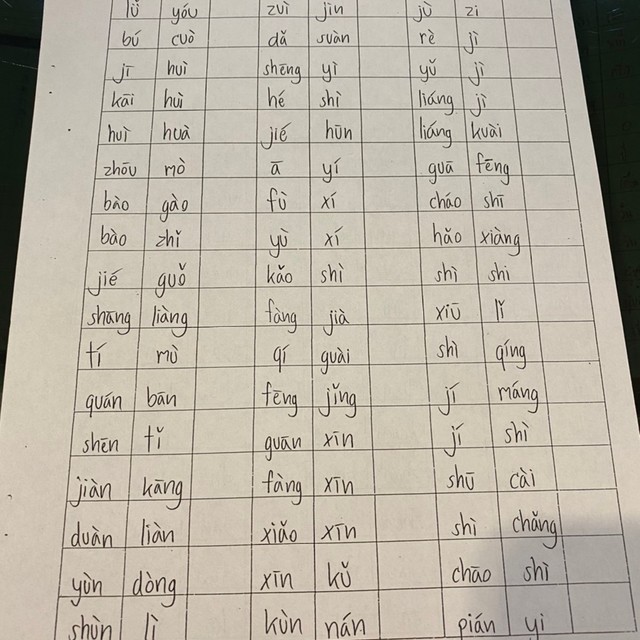 lǚ yóu zuì jìn jù zi
bú cuò dǎ suàn rè jì
jī huì shēng yì yǔ jì
kāi huì hé shì liáng jì
huì huà jié hūn liáng kuài
zhōu mò ā yí guā fēng
bào gào fù xí cháo shī
bào zhǐ yù xí hǎo xiàng
jié guǒ kǎo shì shì shi
shāng liàng fàng jià xiū lǐ
tí mù qí guài shì qíng
quán bān fēng jǐng jí máng
shēn tǐ guān xīn jí shì
jiàn kāng fàng xīn shū cài
duàn liàn xiǎo xīn shì chǎng
yùn dòng xīn kǔ chāo shì
shùn lì kùn nán pián yi